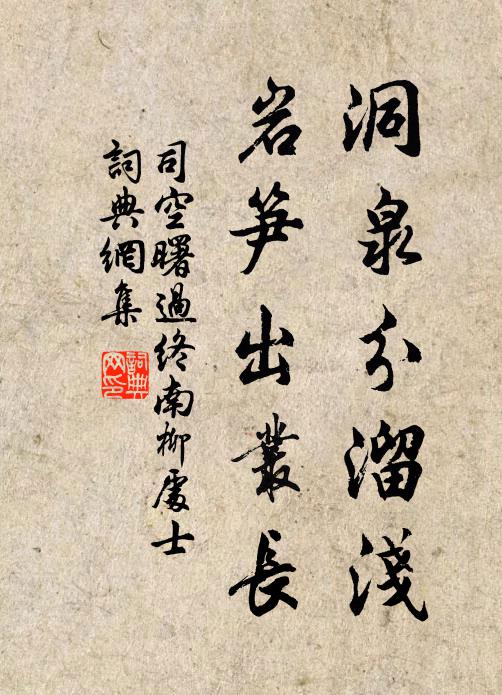 洞泉分溜淺
岩笋出叢長
司空曙過終南柳處士
詞典網集
詞典網印